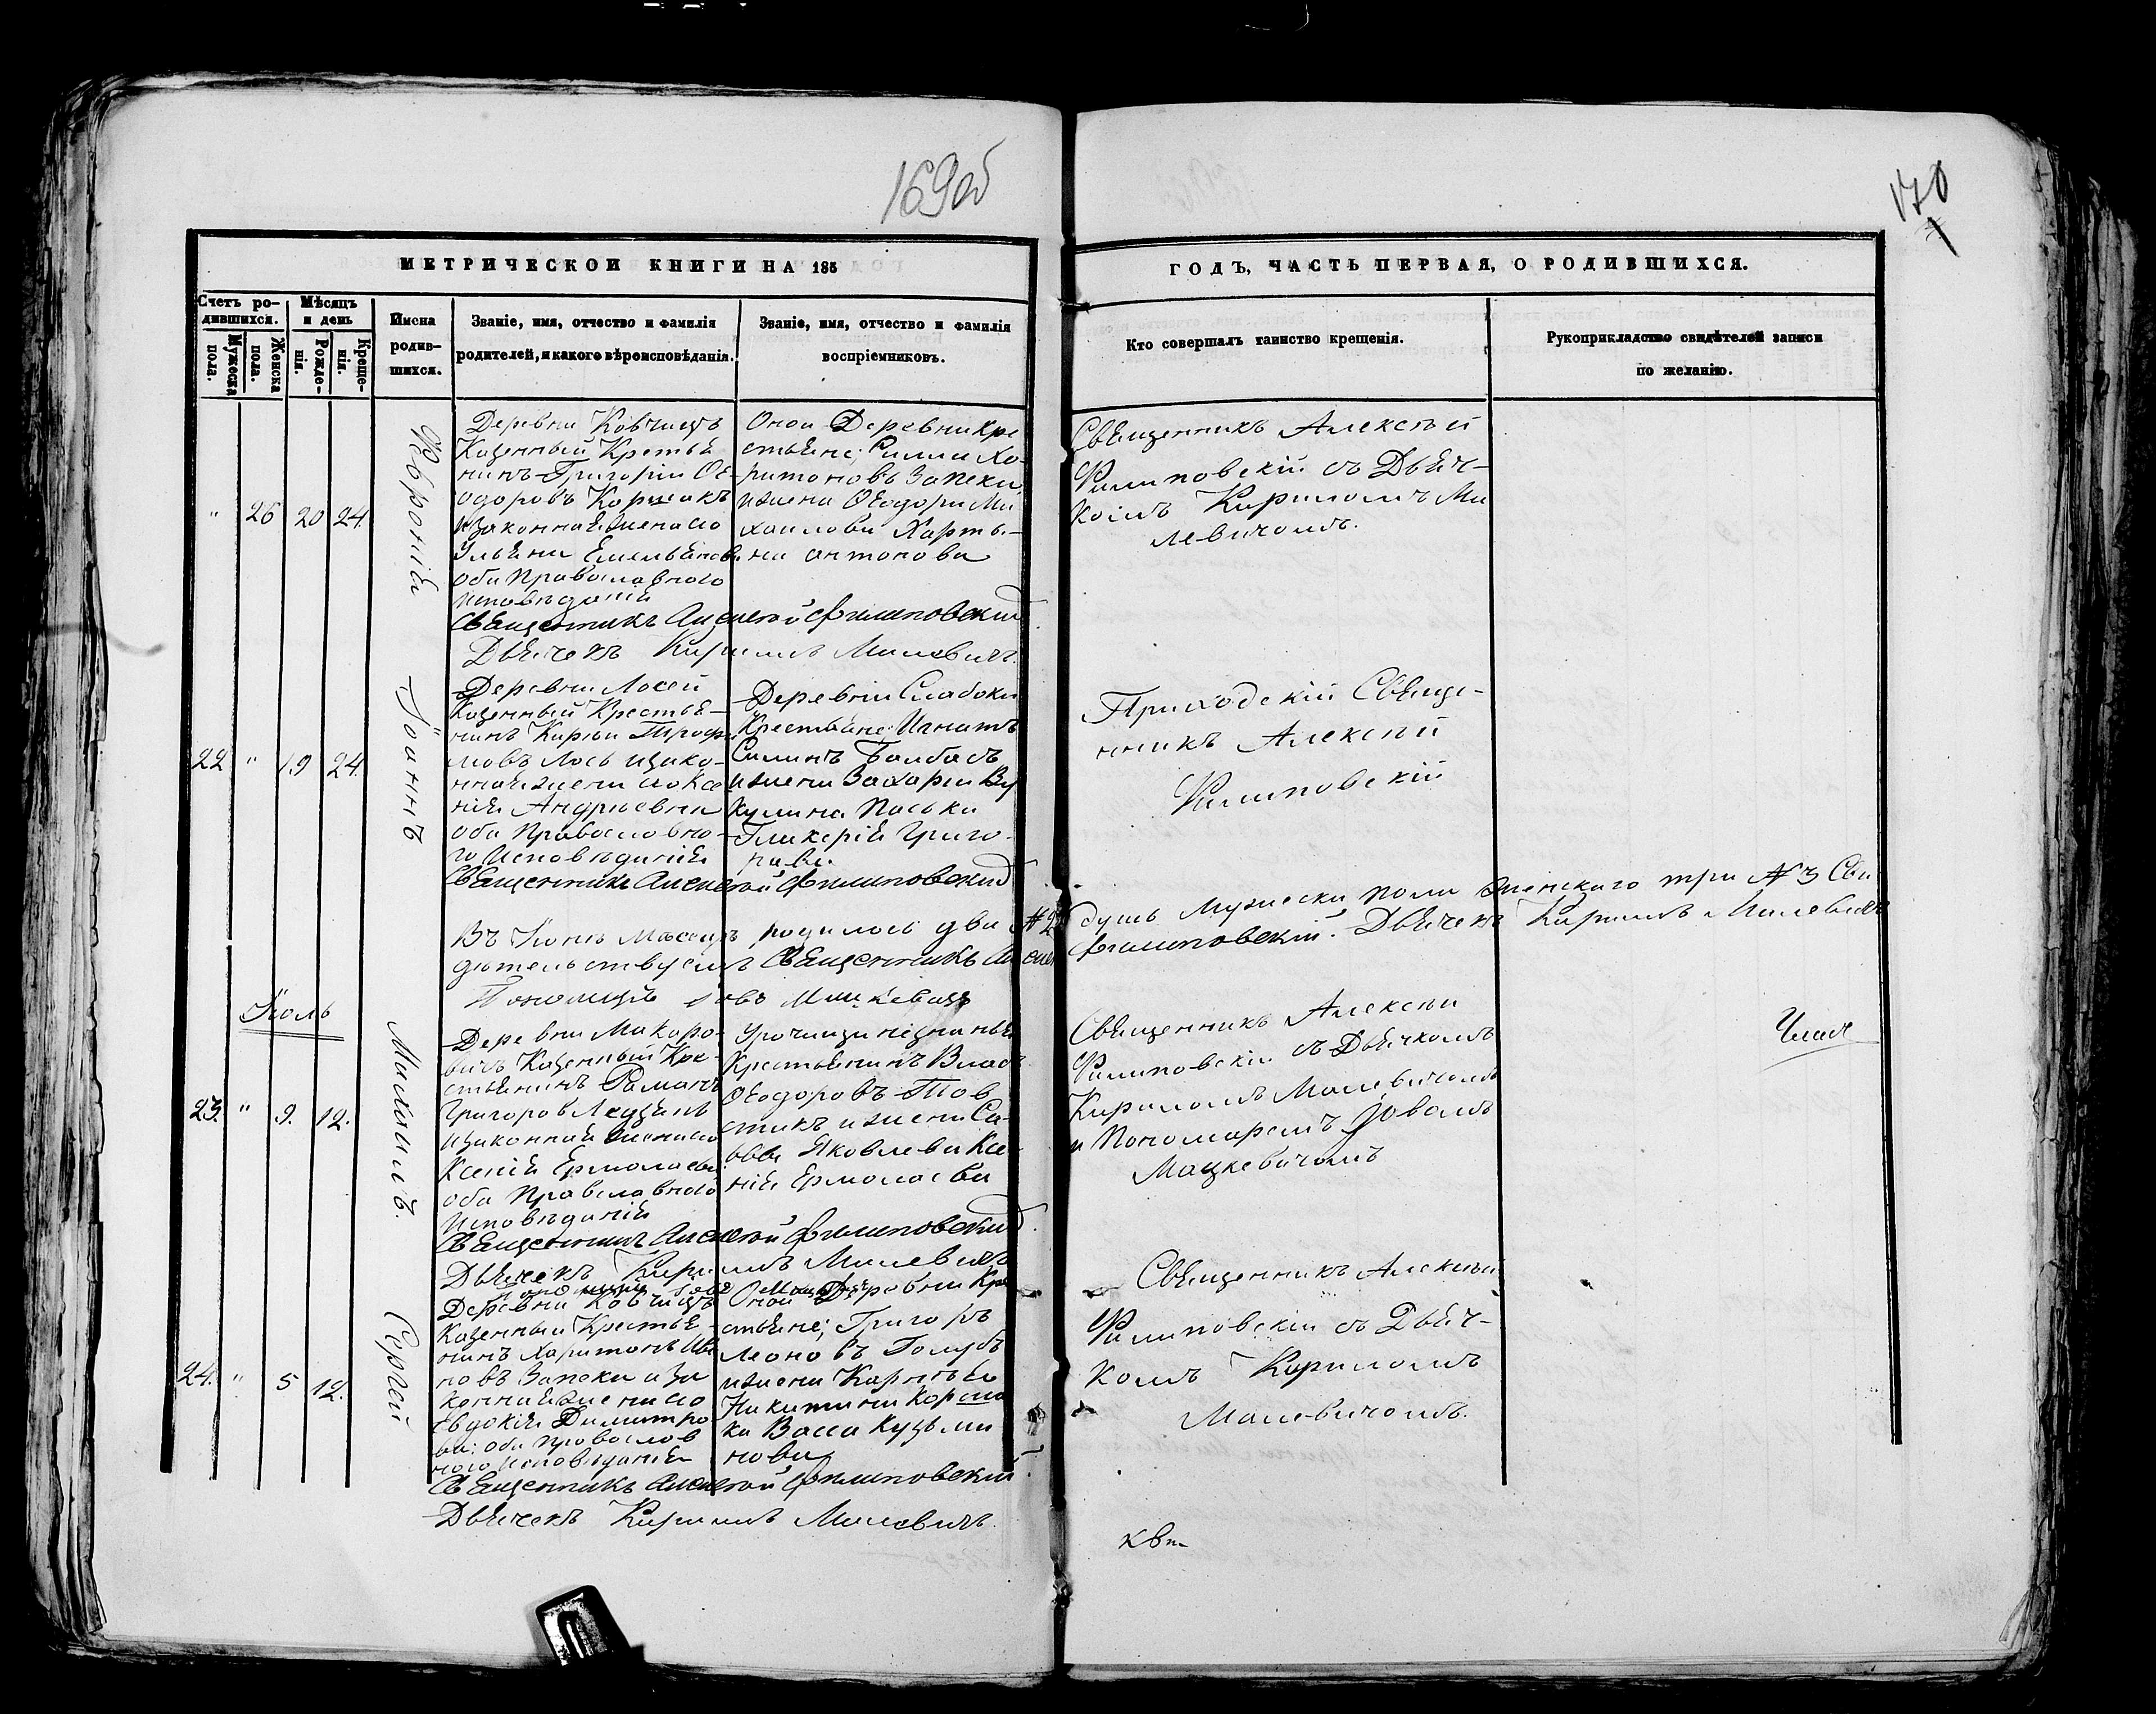 169об
170
МЕТРИЧЕСКОЙ КНИГИ НА 185
ГОДЪ, ЧАСТЬ ПЕРВАЯ, О РОДИВШИХСЯ.
Счетъ ро-
дившихся.
Мужеска
пола.
Женска
пола.
Мѣсяцъ
и день
Рожде-
нія.
Креще-
нія.
Имена
родив-
шихся.
Званіе, имя, отчество и фамилія
родителей, и какого вѣроисповѣданія.
Званіе, имя, отчество и фамилія
воспріемниковъ.
Кто совершалъ таинство крещенія.
Рукоприкладство свидѣтелей записи
по желанію.
" 26 20 24.
Февронія
Деревни Ковчицъ
Казенный Крестья
нинъ Григорій Ѳе-
одоровъ Коршакъ
и законная жена его
Ульяна Емельянова
оба Православнаго
Исповѣданія
Оной Деревни Кре
стьяне; Силла Ха-
ритоновъ Запека
и жена Ѳеодора Ми
хайлова Харты-
на Антонова
Священникъ Алексѣй Филиповскій
Дьячекъ Кирилъ Малевичъ.
Священникъ Алексѣй
Филиповскій съ Дьяч-
комъ Кириломъ Ма
левичомъ.
22 " 19 24.
Іоаннъ
Деревни Лосей
Казенный Крестья-
нинъ Карпъ Трофи
мовъ Лось и зако-
нная жена его Ксе
нія Андреевна
оба Православна-
го Исповѣданія
Деревни Слабоки
Крестьяне; Игнатъ
Силинъ Балбасъ
и жена Захарія Ву
кулина Паська
Гликерія Григо-
рьева.
Священникъ Алексѣй Филиповскій
Приходскій Свяще-
нникъ Алексѣй
Филиповскій
Въ Іюнѣ Мѣсяцѣ родилось два №2 душъ Мужеска пола Женскаго три №3 Сви
дѣтельствуемъ Священникъ Алексѣй Филиповскій. Дьячекъ Кирилъ Малевичъ
Пономарь Іовъ Мацкевичъ
Іюль
23. " 9. 12.
Михаилъ.
Деревни Макаро-
вичъ Казенный Кре-
стьянинъ Романъ
Григоровъ Ледзянъ
и законная жена его
Ксенія Ермолаева
оба Православнаго
Исповѣданія
Урочища
Крестьянинъ Власъ
Ѳеодоровъ Тов
стикъ и жена Са-
ввы Яковлева Ксе
нія Ермолаева
Священникъ Алексѣй Филиповскій
Дьячекъ Кирилъ Малевичъ
Пономарь Іовъ Мацкевичъ
Священникъ Алексѣй
Филиповскій съ Дьячкомъ
Кириломъ Малевичомъ
и Пономаремъ Іовомъ
Мацкевичомъ
24. " 5 12.
Сергѣй
Деревни Ковчицъ
Казенный Крестья-
нинъ Харитонъ Ива
новъ Запека и за
конная жена его
Евдокія Димитро
ва: оба Православ
наго Исповѣданія
Оной Деревни Кре
стьяне; Григоръ
Леоновъ Голубъ
и жена Карнѣя
Никитина Корша
ка Васса Кузьми
нова
Священникъ Алексѣй Филиповскій.
Дьячекъ Кирилъ Малевичъ.
Священникъ Алексѣй
Филиповскій съ Дьяч-
комъ Кириломъ
Малевичомъ.